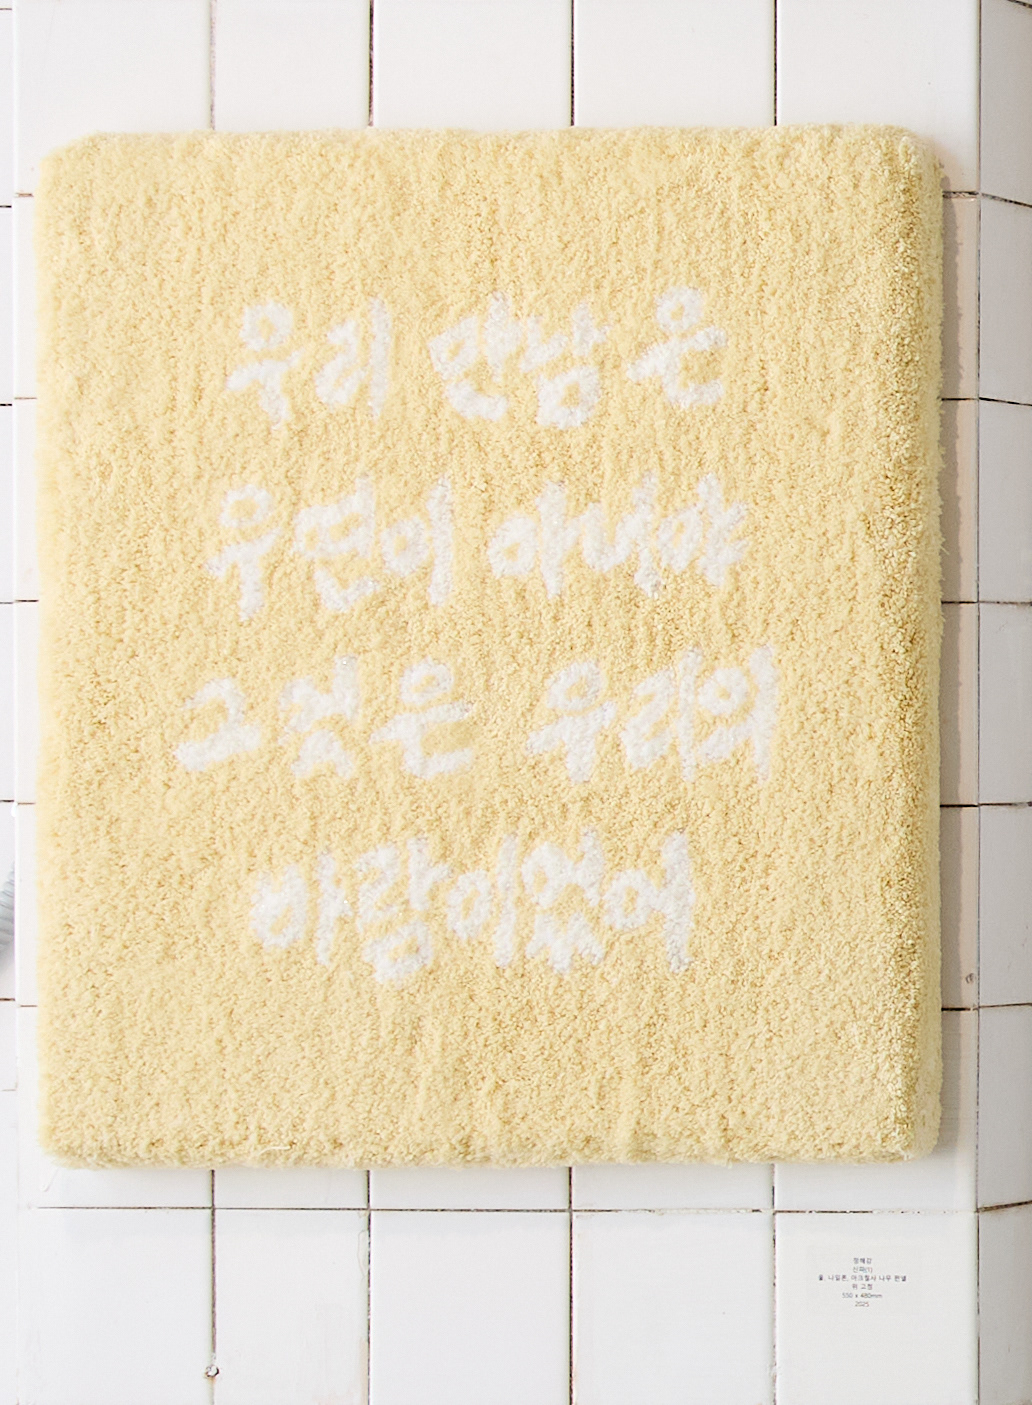 우리 만남은
우연이 아니야
그것은 우리의
바람이었어
장혜강
신파(1)
울, 나일론, 아크릴사 나무 판넬
위 고정
550 x 480mm
2025